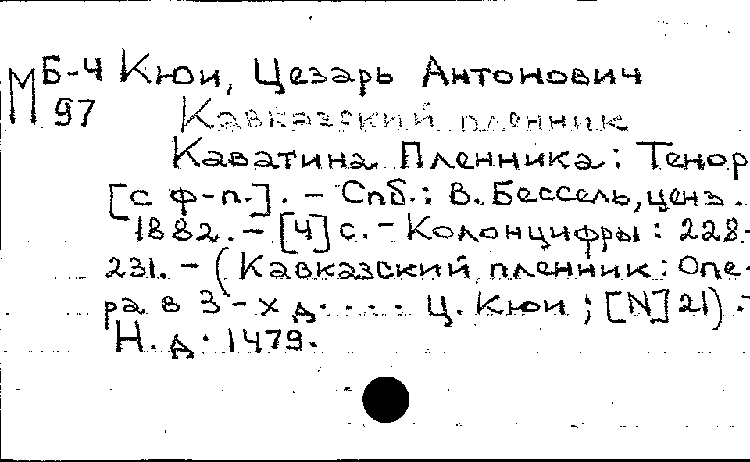 М Б-4 Кюи, Цезарь Антонович
97 Кавказский пленник
Каватина Пленника: Тенор
[с ф-п.]. - Спб.: В. Бессель, ценз.
1882. - [4] с. - Колонцифры: 228-
231. - (Кавказский пленник: Опе-
ра в 3-х д. ... Ц. Кюи; [N] 21). -
Н. д. 1479.